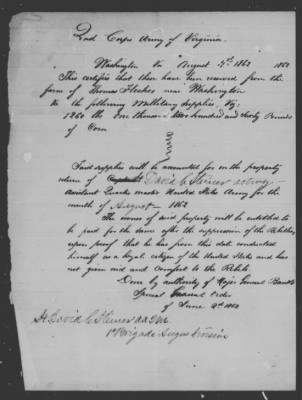 2nd Corps Army of Virginia.
Washington Va August 5th 1862
This certifies that there have been received from the
farm of Thomas Fletcher near Washington
Va the following Military supplies, Viz:
1260 lbs One thousand two hundred and sixty Pounds
of Corn
Said supplies will be accounted for on the property
return of David C. Steiner acting
Assistant Quarter master United States Army for the
month of August 1862
The owner of said property will be entitled to
be paid for the same after the suppression of the Rebellion
upon proof that he has from this date conducted
himself as a loyal citizen of the United States and has
not given aid and comfort to the Rebels.
Done by authority of Major General Banks
Special Order
of June 1862
Lt David C. Steiner A A Q M
1st Brigade Division